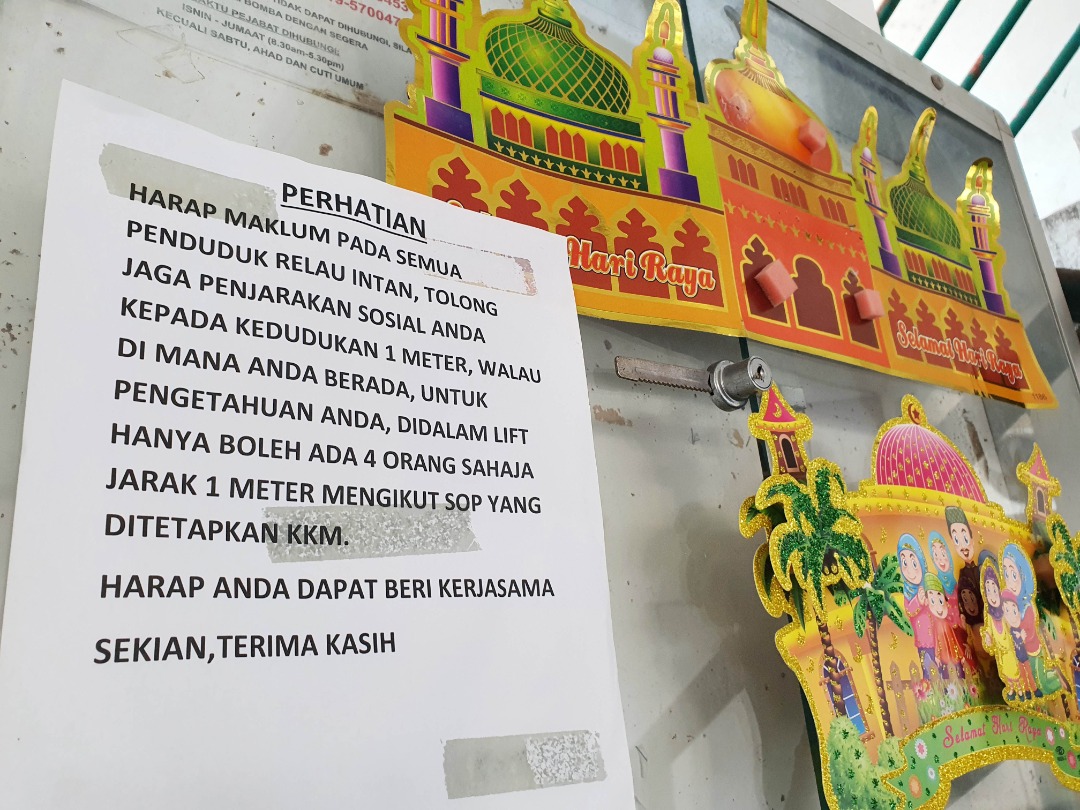 TIDAK DAPAT DIHUBUNGI, SILA
BOMBA DENGAN SEGERA
PEJABAT DIHUBUNGI:
ISNIN - JUMAAT (8.30am-5.30pm)
KECUALI SABTU, AHAD DAN CUTI UMUM
PERHATIAN
HARAP MAKLUM PADA SEMUA
PENDUDUK RELAU INTAN, TOLONG
JAGA PENJARAKAN SOSIAL ANDA
KEPADA KEDUDUKAN 1 METER, WALAU
DI MANA ANDA BERADA, UNTUK
PENGETAHUAN ANDA, DIDALAM LIFT
HANYA BOLEH ADA 4 ORANG SAHAJA
JARAK 1 METER MENGIKUT SOP YANG
DITETAPKAN KKM.
HARAP ANDA DAPAT BERI KERJASAMA
SEKIAN,TERIMA KASIH
Hari Raya
Selamat Hari Raya
1186
Selamat Hari Raya